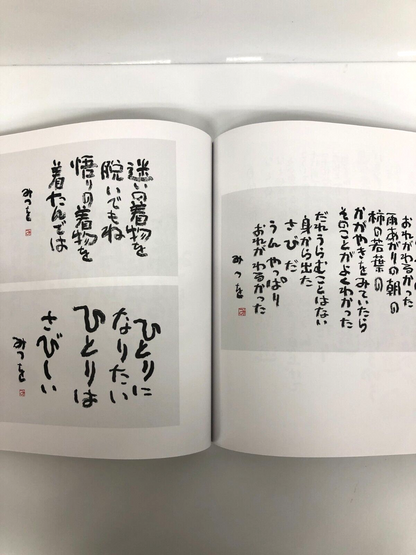 おれがわるかった
雨あがりの朝の
柿の若葉の
かがやきをみていたら
そのことがよくわかった
だれうらむことはない
身から出た
さびだ
うん やっぱり
おれがわるかった
みつを
迷いの着物を
脱いでもね
悟りの着物を
着たんでは
みつを
ひとりに
なりたい
ひとりは
さびしい
みつを